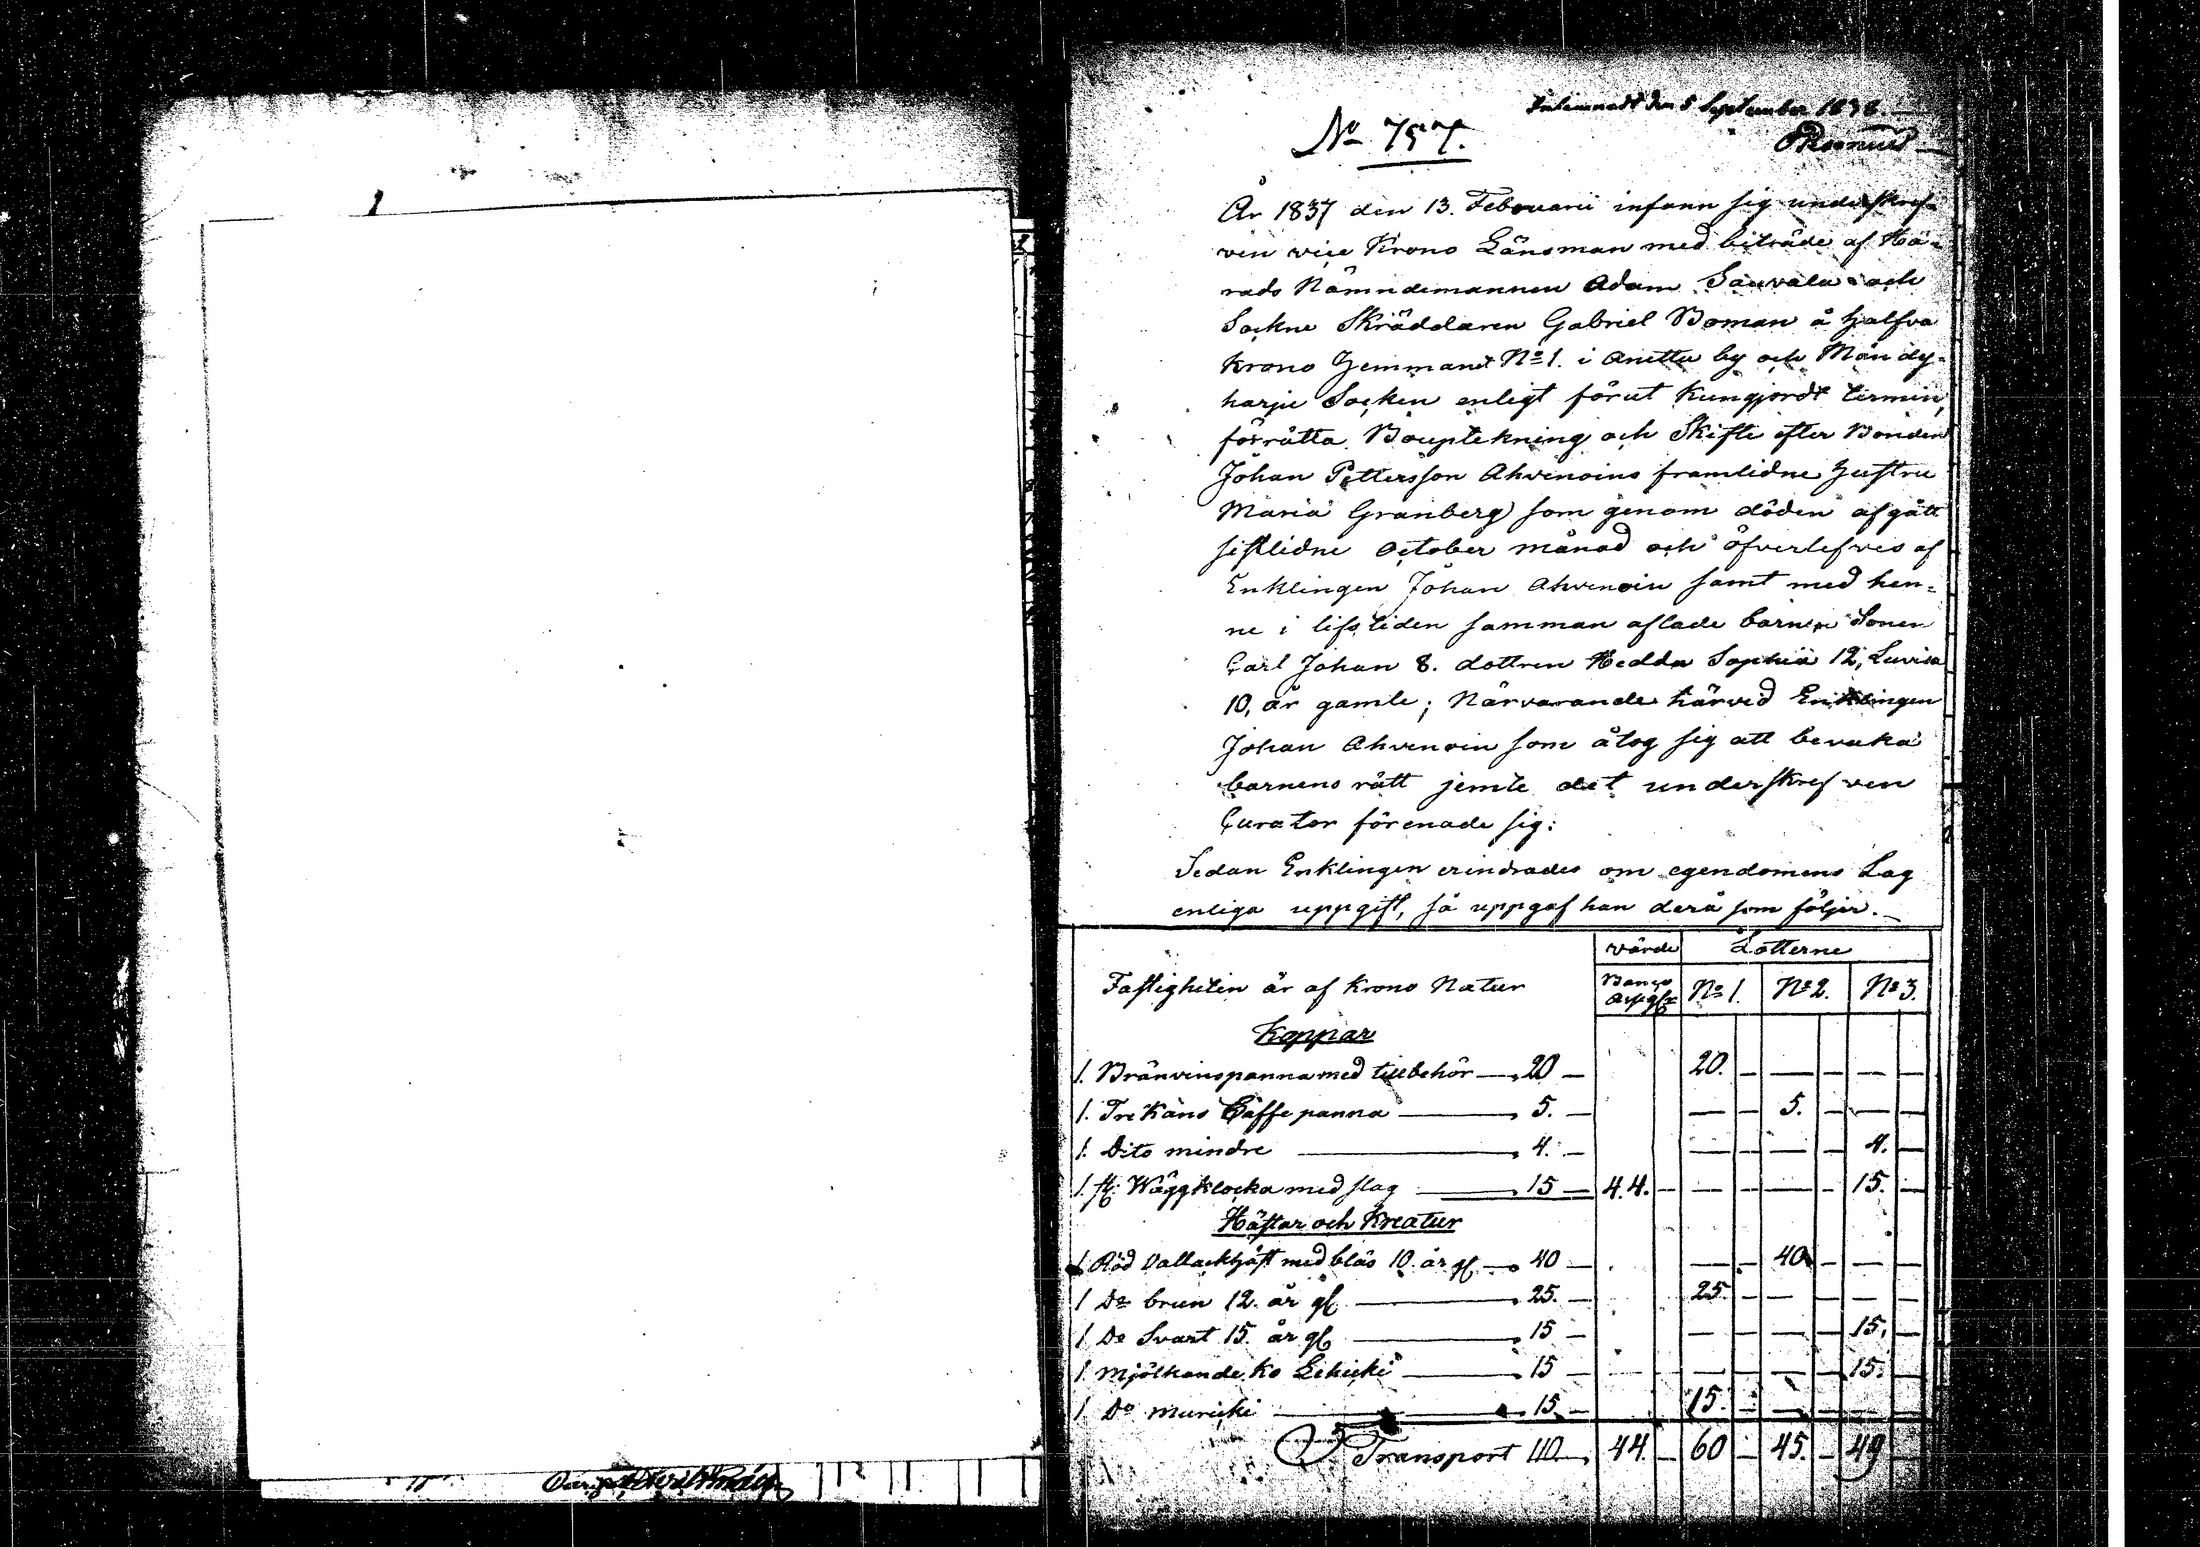 Inlemnadt den 5 September 1838
No 757.
År 1837 den 13. Februarii infann sig underskref-
ven vice Krono Länsman med biträde af Hä-
rads Nämndemannen Adam Sauvala och
Sockne Skräddaren Gabriel Boman å halfva
Krono Hemmanet No 1. i Anettu by och Mändy-
harju Socken enligt förut kungjordt termin,
förrätta Bouptekning och Skifte efter Bonden
Johan Pettersson Ahvenoins framlidne Hustru
Maria Granberg som genom döden afgått
sistlidne October månad och öfverlefves af
Enklingen Johan Ahvenoin samt med hen-
ne i lifstiden samman aflade barnen Sonen
Carl Johan 8. dottren Hedda Sophia 12, Lovisa
10, år gamle; Närvarande härvid Enklingen
Johan Ahvenoin som åtog sig att bevaka
barnens rätt jemte det underskrefven
Curator förenade sig:
Sedan Enklingen erindrades om egendomens Lag
enliga uppgift, så uppgaf han derå som följer.
värde Lotterne
Fastigheten är af Krono Natur Banco No 1. No 2. No 3.
Koppar
1. Bränvinspanna med tillbehör 20 — 20. — — — — —
1. Tre Kans Caffe panna 5. — — — 5. — — —
1. Dito mindre 4. — — — — — 4. —
1. st. Väggklocka med slag 15 — 44. — — — — — 15. —
Hästar och Kreatur
1 Röd Vallackhäst med bläs 10. år gl 40 — — — 40 — — —
1 Do brun 12. år gl 25. — 25. — — — — —
1 Do Svart 15. år gl 15 — — — — — 15. —
1. Mjölkande Ko Lehicki 15 — — — — — 15. —
1. Do Muricki 15 — 15. — — — — —
Transport 110. 44. — 60 — 45. — 49